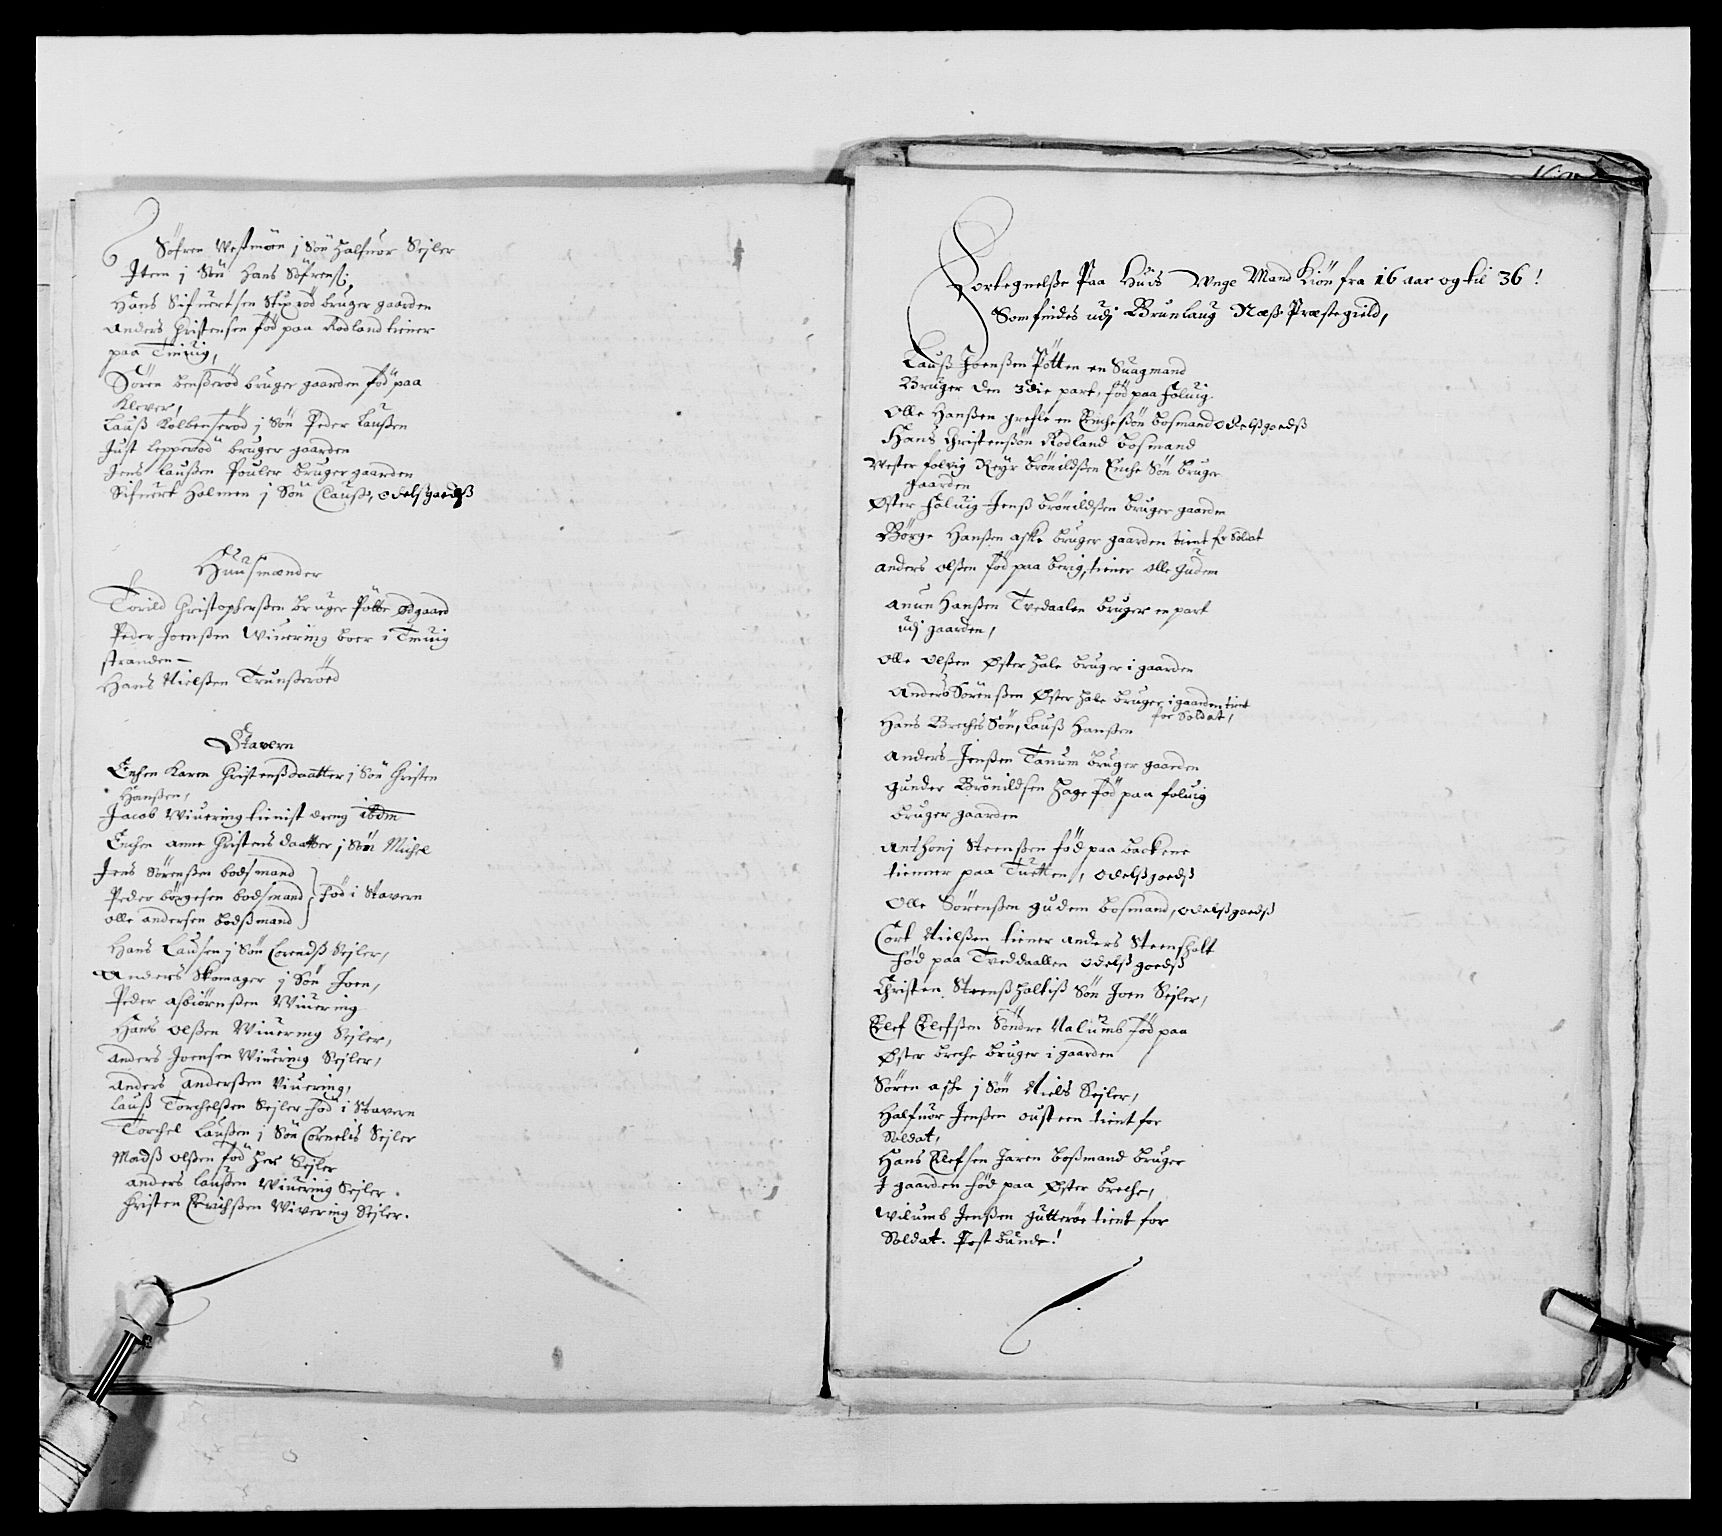 Söfren Westmøen j Søn Halfuor Seyler
Item j Søn Hans Söfrenß:
Hans Sifuertsen Stuprød bruger gaarden
Anders Christensen fød paa Rødland tiener
paa Tinuig,
Søren Benßerød bruger gaarden fød paa
Klever,
Lauß Kolbenserød j Søn Peder Laußen
Just Lepperød bruger gaarden
Jens Laußen Pouler bruger gaarden
Sifuert Holmen j Søn Clauß, odelßgoedß
Huusmænder
Torild Christopherßen bruger Pötte Ødgaard
Peder Joenßen Wiuering boer i Tinuig
stranden
Hans Nielßen Trunßerøed
Stavern
Enchen Karen Christenßdaatter j Søn Christen
Hanßen,
Jacob Wiuering tienist dreng ibdm
Enchen Anne Christens daatter j Søn Michel
Jens Sørenßen bodsmand
Peder Børgesen bodsmand fød i Stavern
Olle Andersen bodßmand
Hans Laußen j Søn Corendß Seyler,
Anders Skomager j Søn Joen,
Peder Asbiørnßen Wiuering
Hans Olßen Wiuering Seyler,
Anders Joensen Wiuering Seyler,
Anders Anderßen Viuering,
Lauß Torchelßen Seyler fød i Stavern
Torchel Laußen j Søn Cornelis Seyler
Madß Olßen fød her Seyler
Anders Laußen Wiuering Seyler.
Christen Erichßen Wivering Seyler.
Fortegnelße Paa Huis Unge Mand Kiøn fra 16 aar og til 36!
Som findes udj Brunlaug Næß Præstegield,
Lauß Joenßen Pötten en Suagmand
Bruger den 3die part, fød paa Foluig.
Olle Hanßen grefle en Encheßøn boßmand odelßgoedß
Hans Christenßøn Rødland bosmand
Wester folvig Reyr Brönildßen Enche Søn bruger
gaarden
Øster Foluig Jenß Brönildßen bruger gaarden
Børge Hanßen Aske bruger gaarden tient for Soldat
Anders Olßen fød paa Berig, tiener Olle Gudem
Anun Hanßen Tvedaalen bruger en part
udj gaarden,
Olle Olßen Øster Hale bruger i gaarden
Anders Sørenßen Øster Hale bruger i gaarden tient
for Soldat,
Hans Breches Søn, Lauß Hanßen
Anders Jenßen Tanum bruger gaarden
Gunder Brönildsen Hage fød paa foluig
bruger gaarden
Anthonj Steenßen fød paa backene
tienner paa Tuetten, odelßgoedß
Olle Sørenßen Gudem bosmand, odelßgoedß
Cort Nielßen tiener Anders Steensholt
fød paa Tveddaallen odelß goedß
Christen Steenßholtiß Søn Joen Seyler,
Elef Elefßen Søndre Nalumb fød paa
Øster breche bruger i gaarden
Søren Aske j Søn Niels Seyler,
Halfuor Jenßen ousteen tient for
Soldat,
Hans Elefsen Jaren boßmand bruger
I gaarden fød paa Øster breche,
Wilumb Jenßen Gutterøe tient for
Soldat. Post bunde!